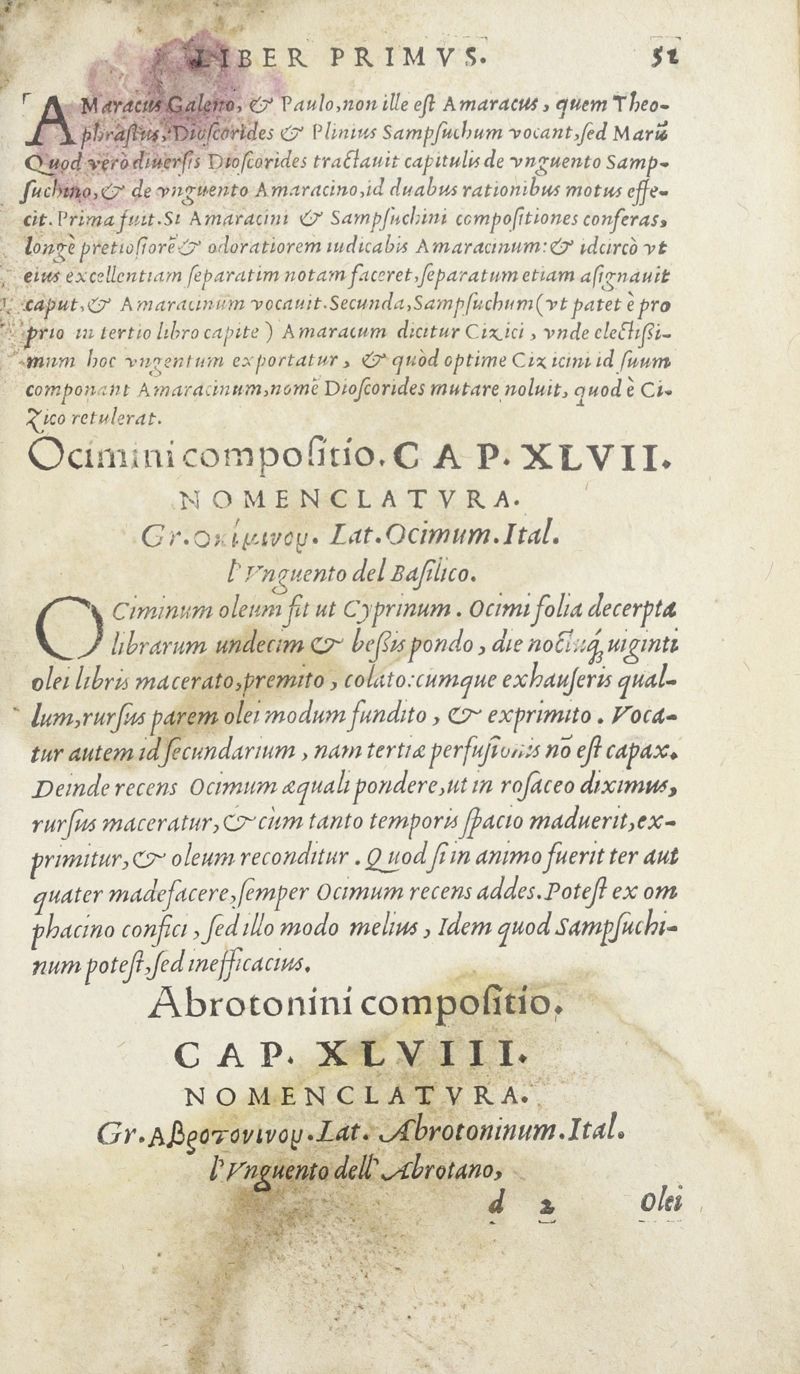 LIBER PRIMVS. 51
AMaracus Galeno, & Paulo, non ille eſt Amaracus, quem Theo-
phraſtus, Dioſcorides & Plinius Sampſuchum vocant, ſed Marũ
Quod verò diuerſis Dioſcorides tractauit capitulis de vnguento Samp-
ſuchino, & de vnguento Amaracino, id duabus rationibus motus effe-
cit. Prima fuit. Si Amaracini & Sampſuchini compoſitiones conferas,
longè pretioſiorē & odoratiorem iudicabis Amaracinum: & idcircò vt
eius excellentiam ſeparatim notam faceret, ſeparatum etiam aſignauit
caput, & Amaracinum vocauit. Secunda, Sampſuchum (vt patet è pro
prio in tertio libro capite) Amaracum dicitur Cizici, vnde electißi-
mum hoc vngentum exportatur, & quòd optime Cizicini id ſuum
componant Amaracinum, nomē Dioſcorides mutare noluit, quod è Ci-
zico retulerat.
Ocimini compoſitio. CAP. XLVII.
NOMENCLATVRA.
Gr. οκίμινον. Lat. Ocimum. Ital.
l' Vnguento del Baſilico.
OCiminum oleum fit ut Cyprinum. Ocimi folia decerpta
librarum undecim & beßis pondo, die noctuq́; uiginti
olei libris macerato, premito, colato: cumque exhauſeris qual-
lum, rurſus parem olei modum fundito, & exprimito. Voca-
tur autem id ſecundarium, nam tertiæ perfuſionis nō eſt capax.
Deinde recens Ocimum æquali pondere, ut in roſaceo diximus,
rurſus maceratur, & cùm tanto temporis ſpacio maduerit, ex-
primitur, & oleum reconditur. Quod ſi in animo fuerit ter aut
quater madefacere, ſemper Ocimum recens addes. Poteſt ex om
phacino confici, ſed illo modo melius, Idem quod Sampſuchi-
num poteſt, ſed inefficacius.
Abrotonini compoſitio.
CAP. XLVIII.
NOMENCLATVRA.
Gr. Αβροτονινον. Lat. Abrotoninum. Ital.
l' Vnguento dell' Abrotano,
d 2 Olei